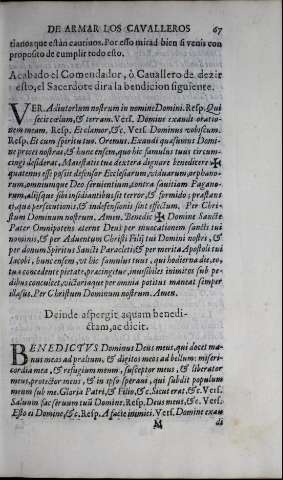 DE ARMAR LOS CAVALLEROS 67
tianos que estàn cautiuos. Por esso mirad bien si venis con
proposito de cumplir todo esto.
Acabado el Comendador, ò Cauallero de dezir
esto, el Sacerdote dira la bendicion siguiente.
VER. Adiutorium nostrum in nomine Domini. Resp. Qui
fecit cœlum, & terram. Vers. Domine exaudi orationem
meam. Resp. Et clamor, &c. Vers. Dominus vobiscum.
Resp. Et cum spiritu tuo. Oremus. Exaudi quæsumus Domine
preces nostras, & hunc ensem, quo hic famulus tuus circumcingi
desiderat, Maiestatis tuæ dextera dignare benedicere ✠
quatenus esse possit defensor Ecclesiarum, viduarum, orphanorum,
omniumque Deo seruientium, contra sæuitiam Paganorum,
alijsque sibi insidiantibus sit terror, & formido; præstans
ei, quæ persecutionis, & indefensionis sint effectum. Per Christum
Dominum nostrum. Amen. Benedic ✠ Domine Sancte
Pater Omnipotens æterne Deus per inuocationem sancti tui
nominis, & per Aduentum Christi Filij tui Domini nostri, &
per donum Spiritus Sancti Paracleti & per merita Apostoli tui
Iacobi, hunc ensem, vt hic famulus tuus, qui hodierna die eo,
tua concedente pietate, præcingitur, inuisibiles inimicos sub pedibus
conculcet, victoriaque per omnia potitus maneat semper
illæsus. Per Christum Dominum nostrum. Amen.
Deinde aspergit aquam benedictam,
ac dicit.
BENEDICTVS Dominus Deus meus, qui docet manus
meas ad prælium, & digitos meos ad bellum: misericordia
mea, & refugium meum, susceptor meus, & liberator
meus, protector meus, & in ipso speraui, qui subdit populum
meum sub me. Gloria Patri, & Filio, &c. Sicut erat, &c. Vers.
Saluum fac seruum tuum Domine. Resp. Deus meus, &c. Vers.
Esto ei Domine, &c. Resp. A facie inimici. Vers. Domine exau
M di